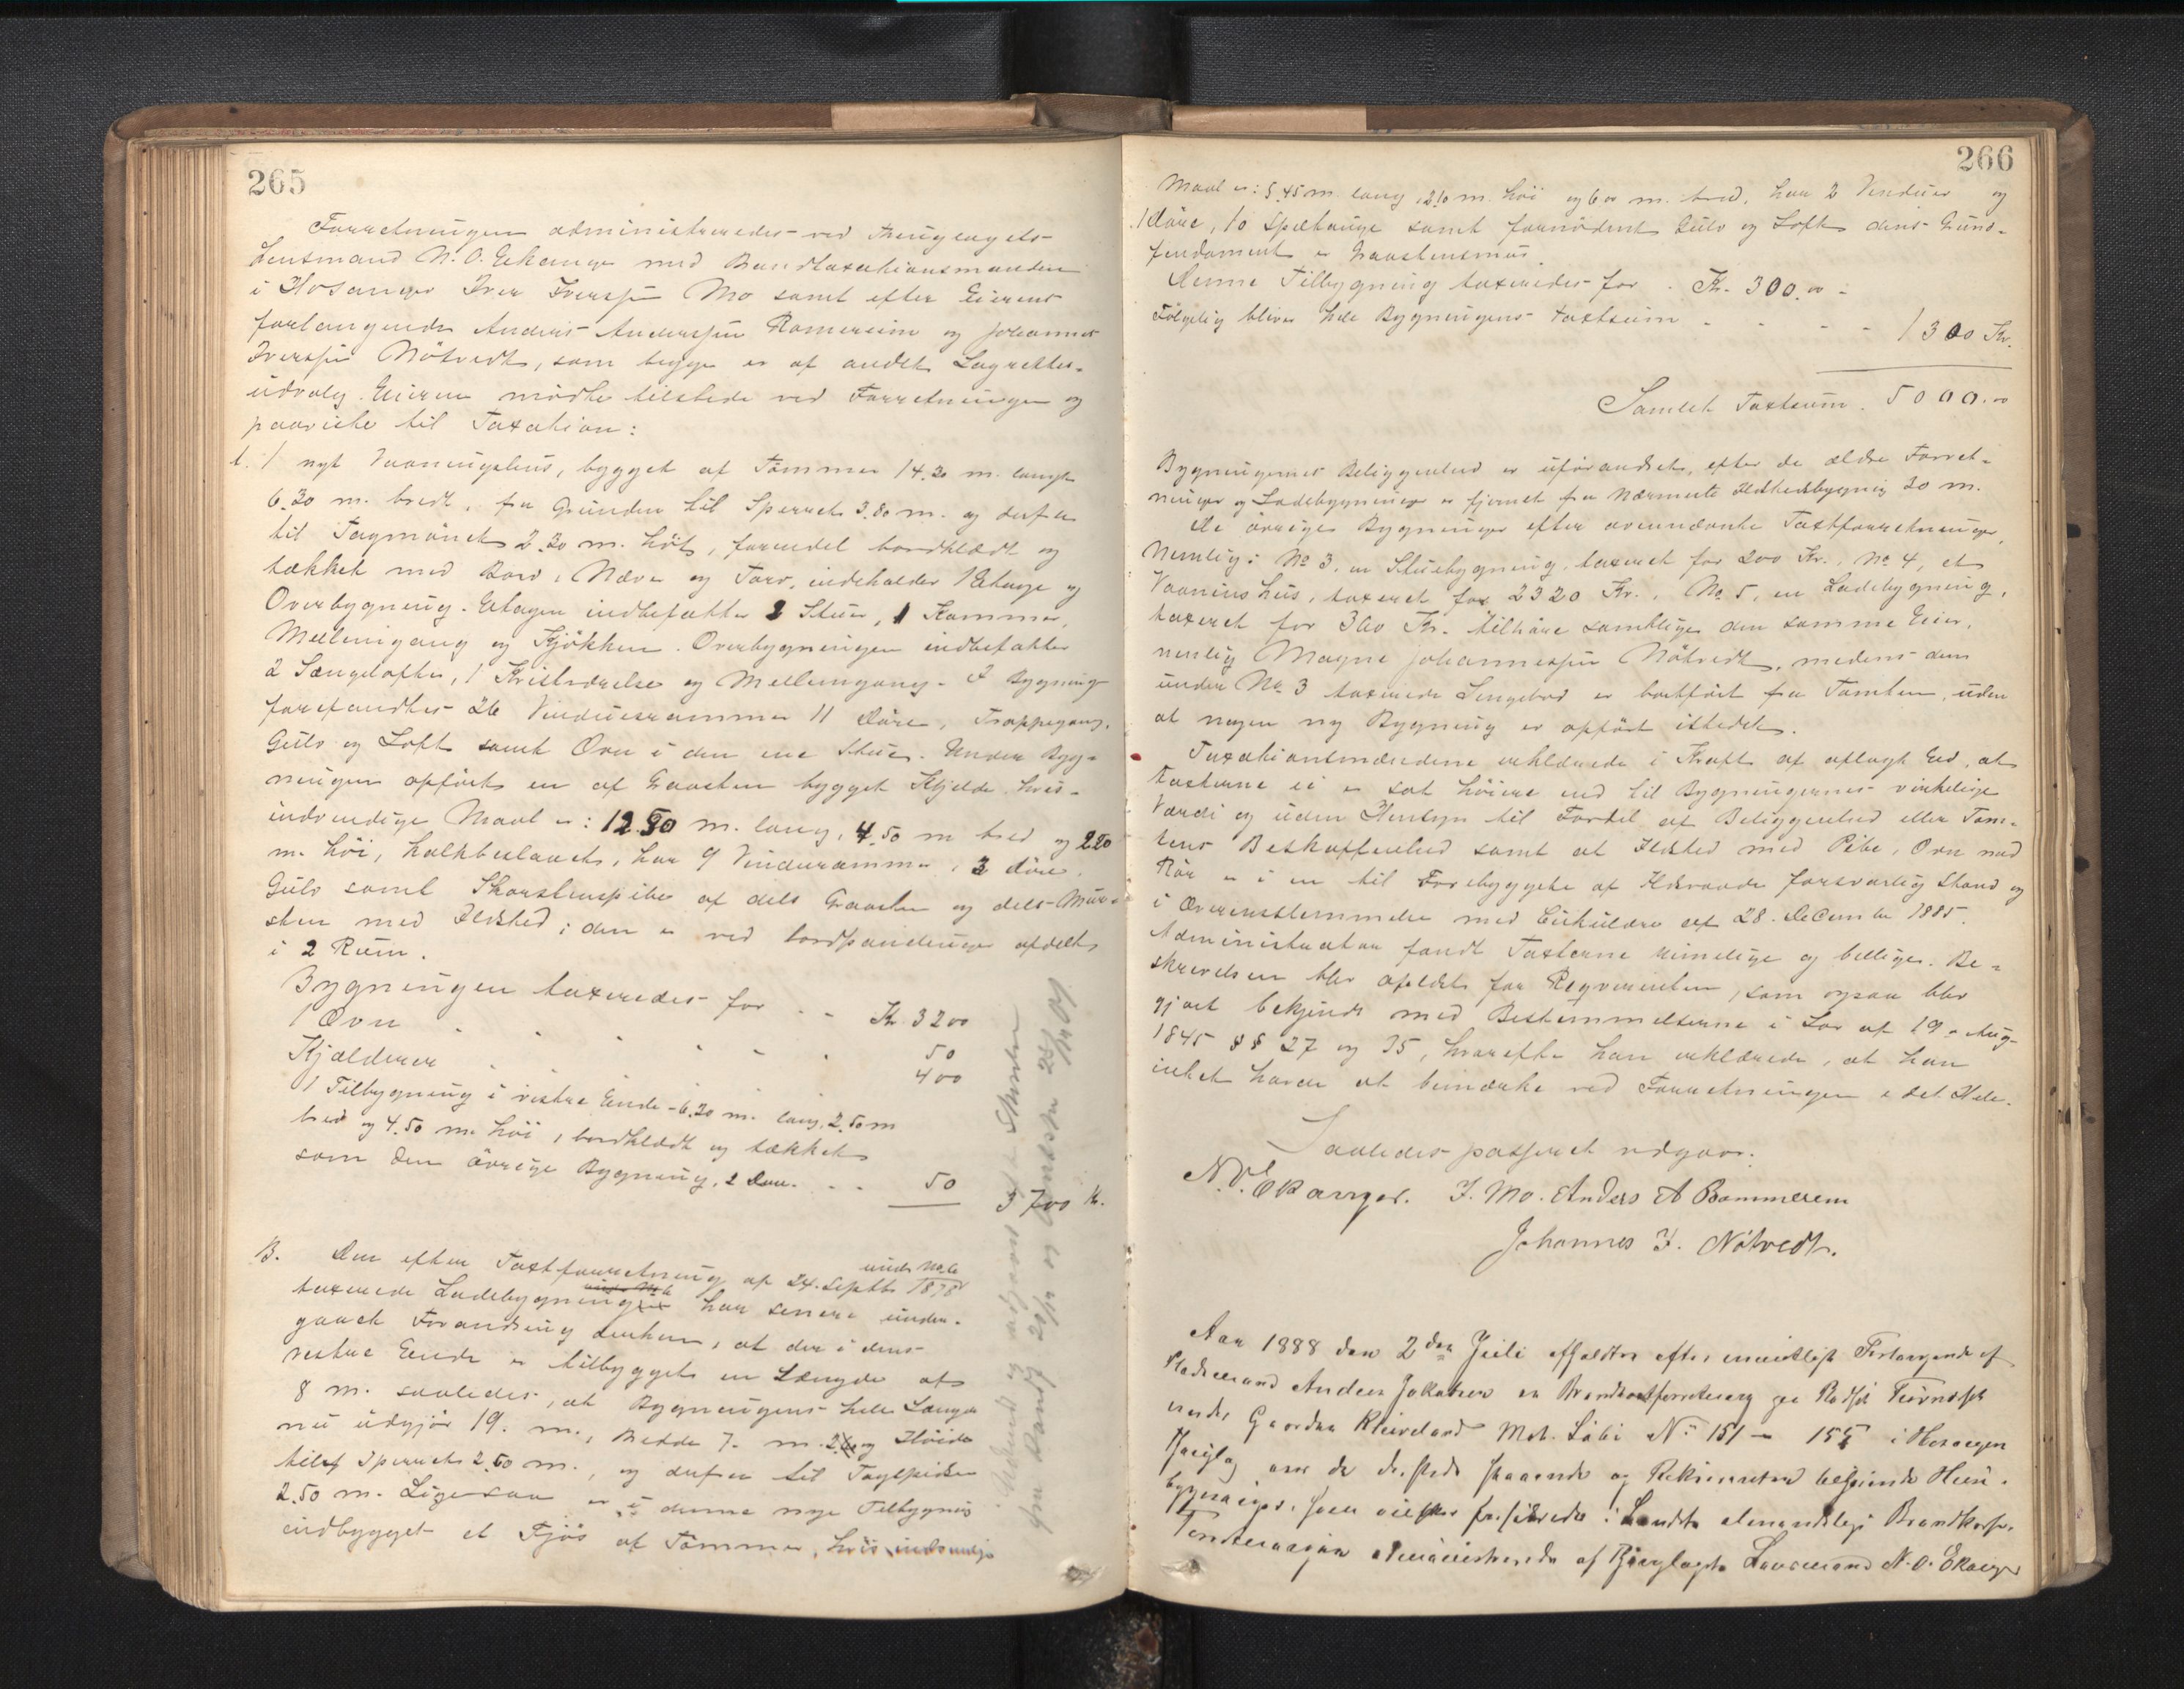 265
Forretningen administreredes ved Thinglagets
Lensmand N. O. Eikanger med Brandtaxationsmanden
i Hosanger Iver Iversen Mo samt efter Eierens
forlangende Anders Andersen Romereim og Johannes
Iversen Nötvedt, som begge er af andet Lagrettes-
udvalg. Eieren mödte tilstede ved Forretningen og
paaviste til Taxation:
1. 1 nyt Vaaningshus, bygget af Tömmer 14.30 m. langt
6.30 m. bredt, fra Grunden til Sperret 3.80 m. og derfra
til Tagmönet 2.30 m. höit, forendel bordklædt og
tækket med Bord, Næver og Torv, indeholder 1 Etage og
Overbygning. Etagen indbefatter 2 Stuer, 1 Kammer,
Mellemgang og Kjökken. Overbygningen indbefatter
2 Sængelofter, 1 Kvistværelse og Mellemgang. I Bygning
forefandtes 26 Vinduesrammer 11 Döre, Trappegang,
Gulv og Loft samt Ovn i den ene Stue. Under Byg-
ningen opfört en af Graasten bygget Kjelder hvis
indvendige Maal er: 12.80 m. lang, 4.50 m bred og 2.20
m. höi, halkbeslaaet, har 9 Vinduerammer, 3 döre,
Gulv samt Skorstenspibe af dels Graasten og dels Mur-
sten med Ildsted; den er ved bordpandinger afdelt
i 2 Rum.
Bygningen taxeredes for . . Kr. 3200
1 Ovn . . . . . 50
Kjælderen . . . . 400
1 Tilbygning i vestre Ende - 6.30 m. lang, 2.50 m
bred og 4.50 m. höi, bordklædt og tækket
som den övrige Bygning, 2 Döre. . . 50
3700 Kr.
B. Den efter Taxtforretning af 24. Septbr 1878 under No 6
taxerede Ladebygning har senere under-
gaaet Forandring derhen, at der i dens
vestre Ende er tilbygget en Længde af
8 m. saaledes, at Bygningens hele Længde
nu udgjör 19. m., Bredde 7. m. og Höide
til Sperret 2.50 m., og derfra til Tagspidsen
2.50 m. Ligesaa er i denne nye Tilbygning
indbygget et Fjös af Tömmer, hvis indvendige
266
Maal er: 5.45 m. lang, 2.10 m. höi og 6.00 m. bred, har 2 Vinduer og
1 Döre, 10 Spiltauge samt fornödent Gulv og Loft dens Grund-
fundament er Graastensmur.
Denne Tilbygning taxeredes for . Kr. 300.00 -
Fölgelig bliver hele Bygningens taxtsum - - - - 1300 Kr.
Samlet Taxtsum. 5000.00
Bygningernes Beliggenhed er uforandret, efter de ældre Forret-
ninger og Ladebygningen er fjernet fra Nærmeste Ildstedsbygning 30 m.
De övrige Bygninger efter ovennævnte Taxtforretninger,
Nemlig: No 3, en Stuebygning, taxeret for 200 Kr., No 4, et
Vaaninshus, taxeret for 2320 Kr., No 5, en Ladebygning,
taxeret for 300 Kr. tilhöre samtlige den samme Eier,
nemlig Magne Johannesen Nötvedt, medens den
under No 3 taxerede Sengebod er bortfört fra Tomten, uden
at nogen ny Bygning er opfört istedet.
Taxationsmændene erklærede i Kraft af aflagt Ed, at
Taxterne ei er sat höiere end til Bygningernes virkelige
Værdi og uden Hensyn til Fordel af Beliggenhed eller Tom-
tens Beskaffenhed samt at Ildsted med Pibe, Ovn med
Rör er i en til Forebyggelse af Ildsvaade forsvarlig Stand og
i Overensstemmelse med Cirkulære af 28. December 1885.
Administrator fandt Taxterne rimelige og billige. Be-
skrivelsen blev oplæst for Reqvirenten, som ogsaa blev
gjort bekjendt med Bestemmelserne i Lov af 19. Aug-
1845 §§ 27 og 35, hvorefter han erklærede, at han
intet havde at bemærke ved Forretningen i det Hele.
Saaledes passeret udgaar.
N. O. Ekanger. I. Mo. Anders A Rommerem
Johannes I. Nötvedt.
Aar 1888 den 2den Juli afholdtes efter mundtligt Forlangende af
Pladsmand Anders Jakobsen en Brandtaxtforretning paa Pladset
under Gaarden Kleiveland Mat. Löbe No 151 - 155 i Hosanger
Thinglag over de dersteds staaende og Rekvirenten tilhörende Huus-
bygninger, som villes forsikrede i Landets almindelige Brandkasse.
Forretningen administreredes af Thinglagets Lensmand N. O. Ekanger